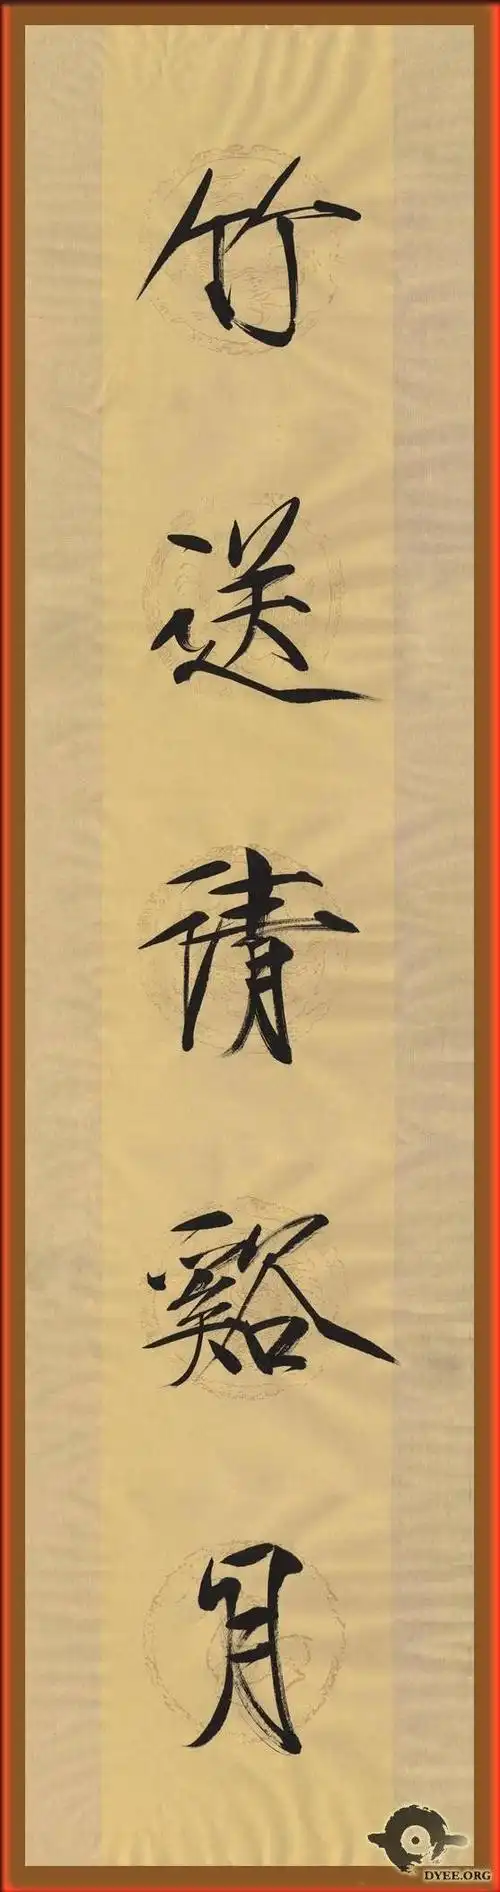 竹送清谿月
DYEE.ORG